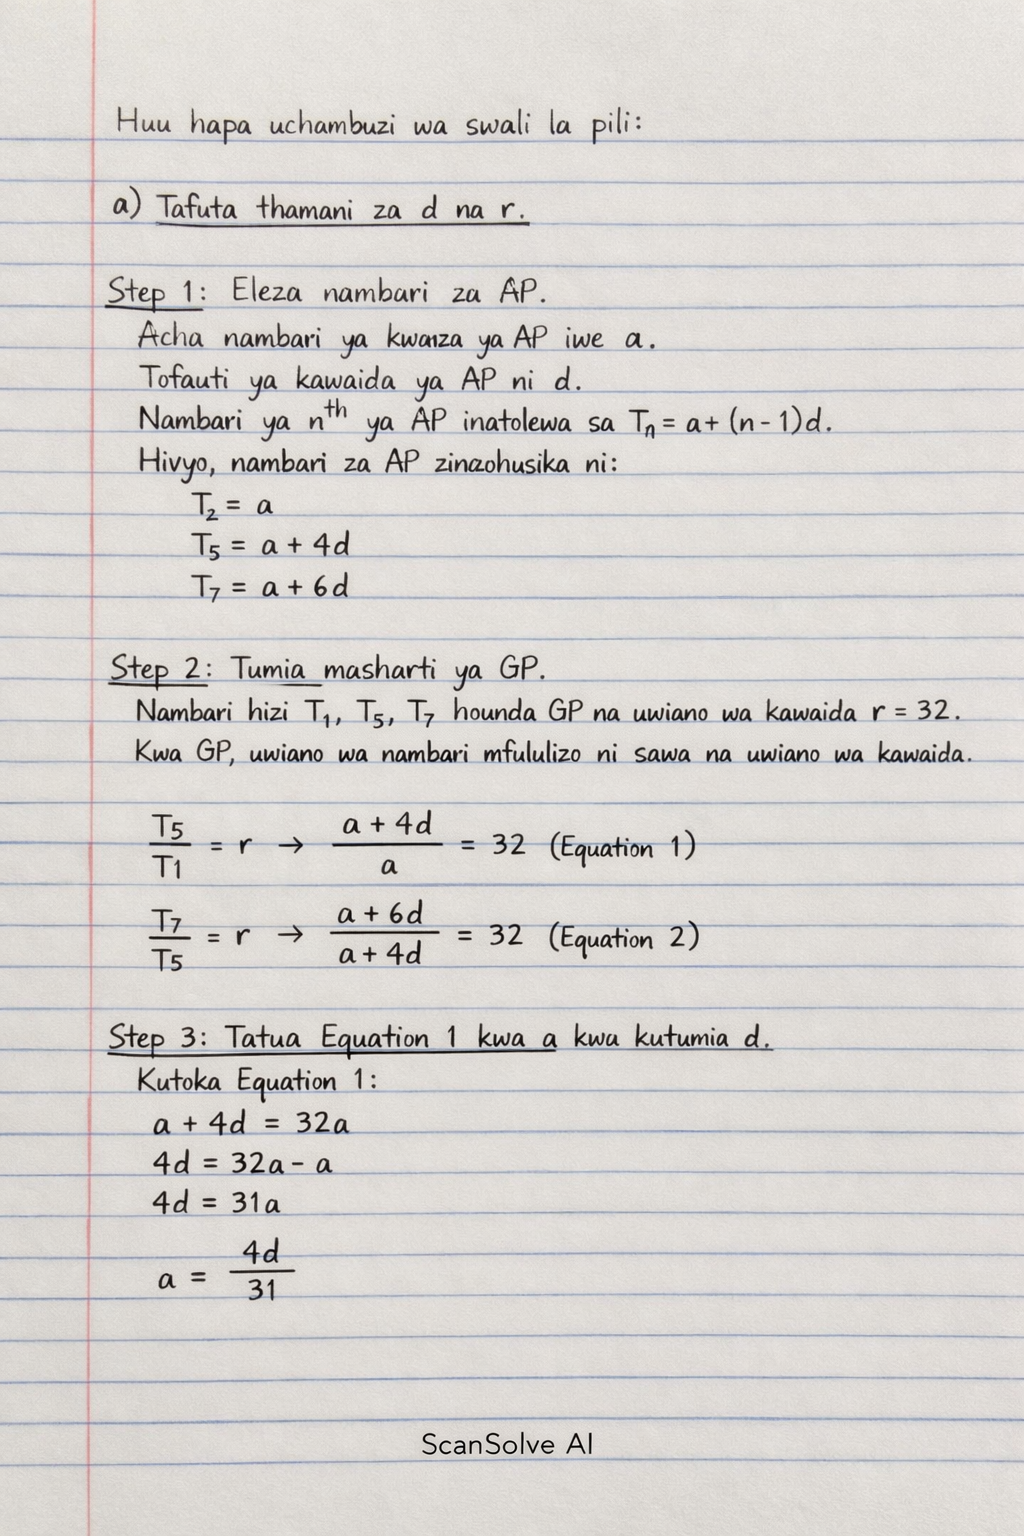 Huu hapa uchambuzi wa swali la pili:
a) Tafuta thamani za d na r.
Step 1: Eleza nambari za AP.
Acha nambari ya kwanza ya AP iwe a.
Tofauti ya kawaida ya AP ni d.
Nambari ya nᵗʰ ya AP inatolewa sa Tₙ = a + (n - 1)d.
Hivyo, nambari za AP zinazohusika ni:
T₂ = a
T₅ = a + 4d
T₇ = a + 6d
Step 2: Tumia masharti ya GP.
Nambari hizi T₁, T₅, T₇ hounda GP na uwiano wa kawaida r = 32.
Kwa GP, uwiano wa nambari mfululizo ni sawa na uwiano wa kawaida.
T5/T1 = r → (a + 4d)/a = 32 (Equation 1)
T7/T5 = r → (a + 6d)/(a + 4d) = 32 (Equation 2)
Step 3: Tatua Equation 1 kwa a kwa kutumia d.
Kutoka Equation 1:
a + 4d = 32a
4d = 32a - a
4d = 31a
a = 4d/31
ScanSolve AI